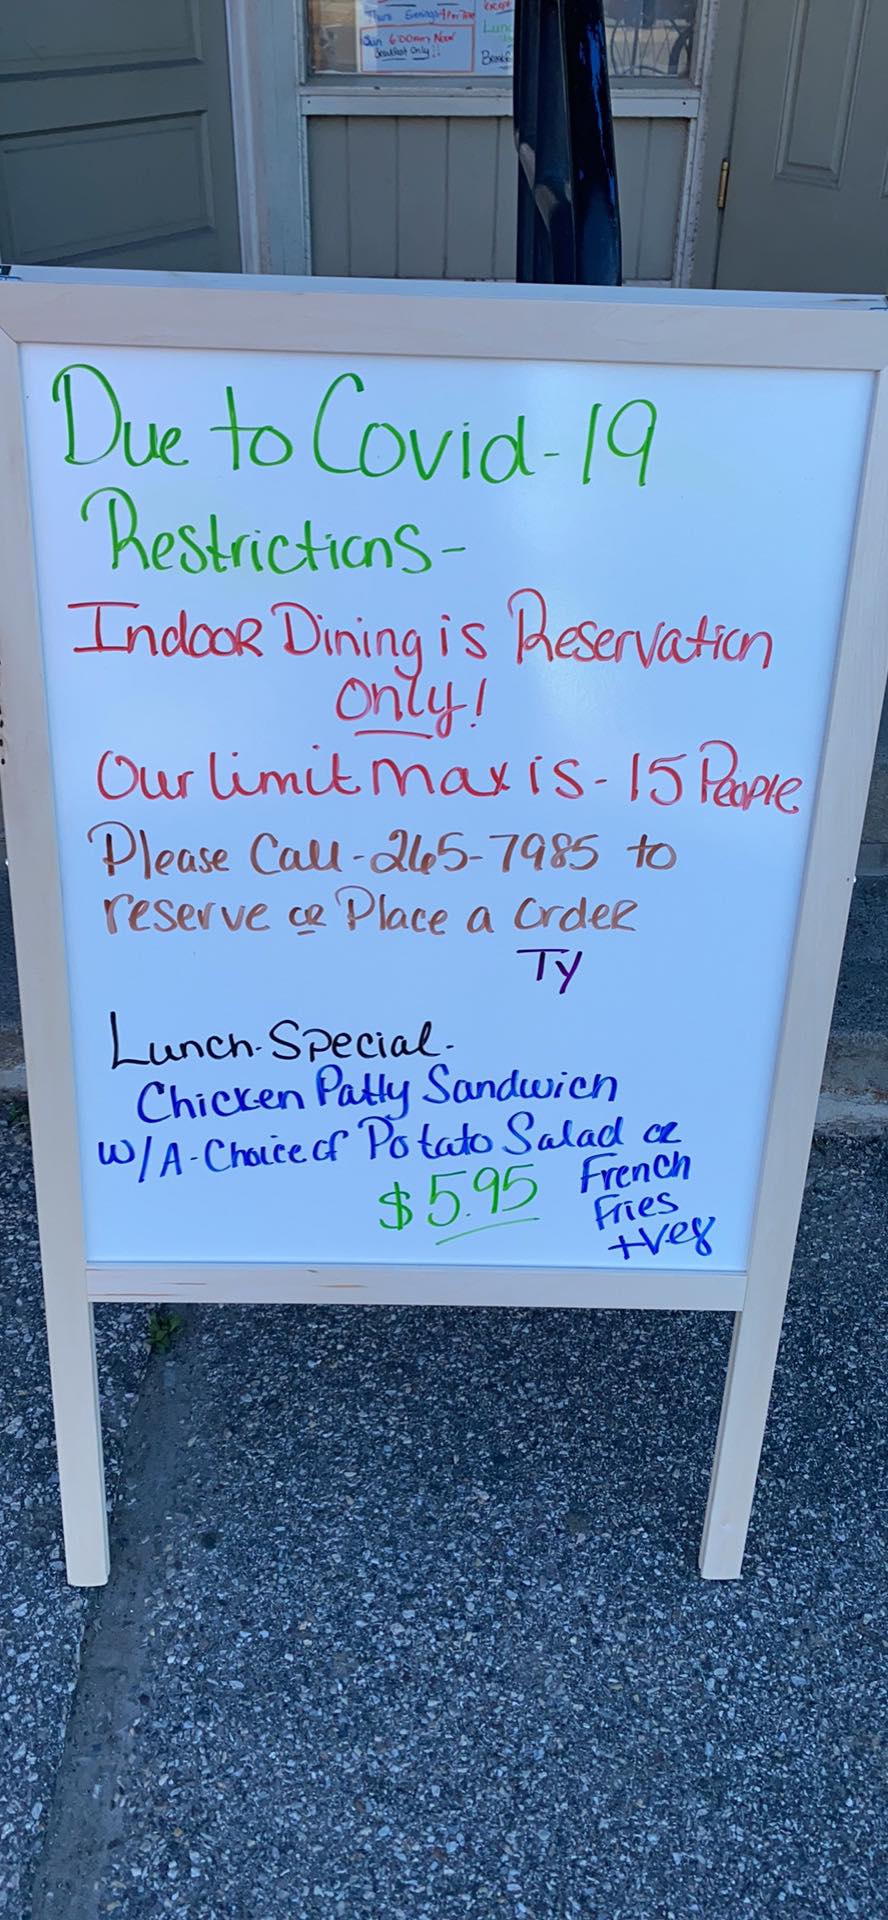 Thurs Evenings
Sun 6:00am Noon
Breakfast Only!!
Due to Covid-19
Restrictions-
Indoor Dining is Reservation
Only!
Our limit max is - 15 People
Please Call - 265-7985 to
reserve or Place a Order
Ty
Lunch-Special-
Chicken Patty Sandwich
W/A-Choice of Potato Salad or
French
Fries
+Veg
$5.95